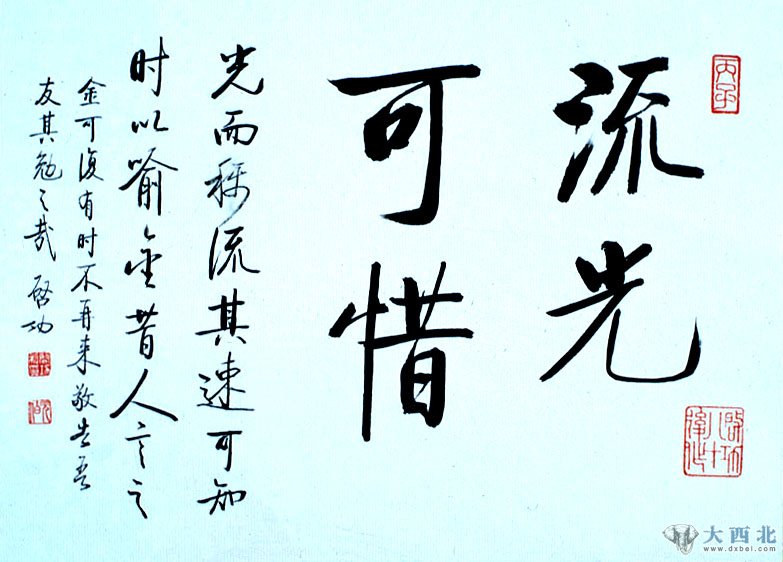 流光
可惜
光而称流其速可知
时以喻金昔人言之
金可復有时不再来敬告吾
友其勉之哉 啓功
大西北
www.dxbei.com